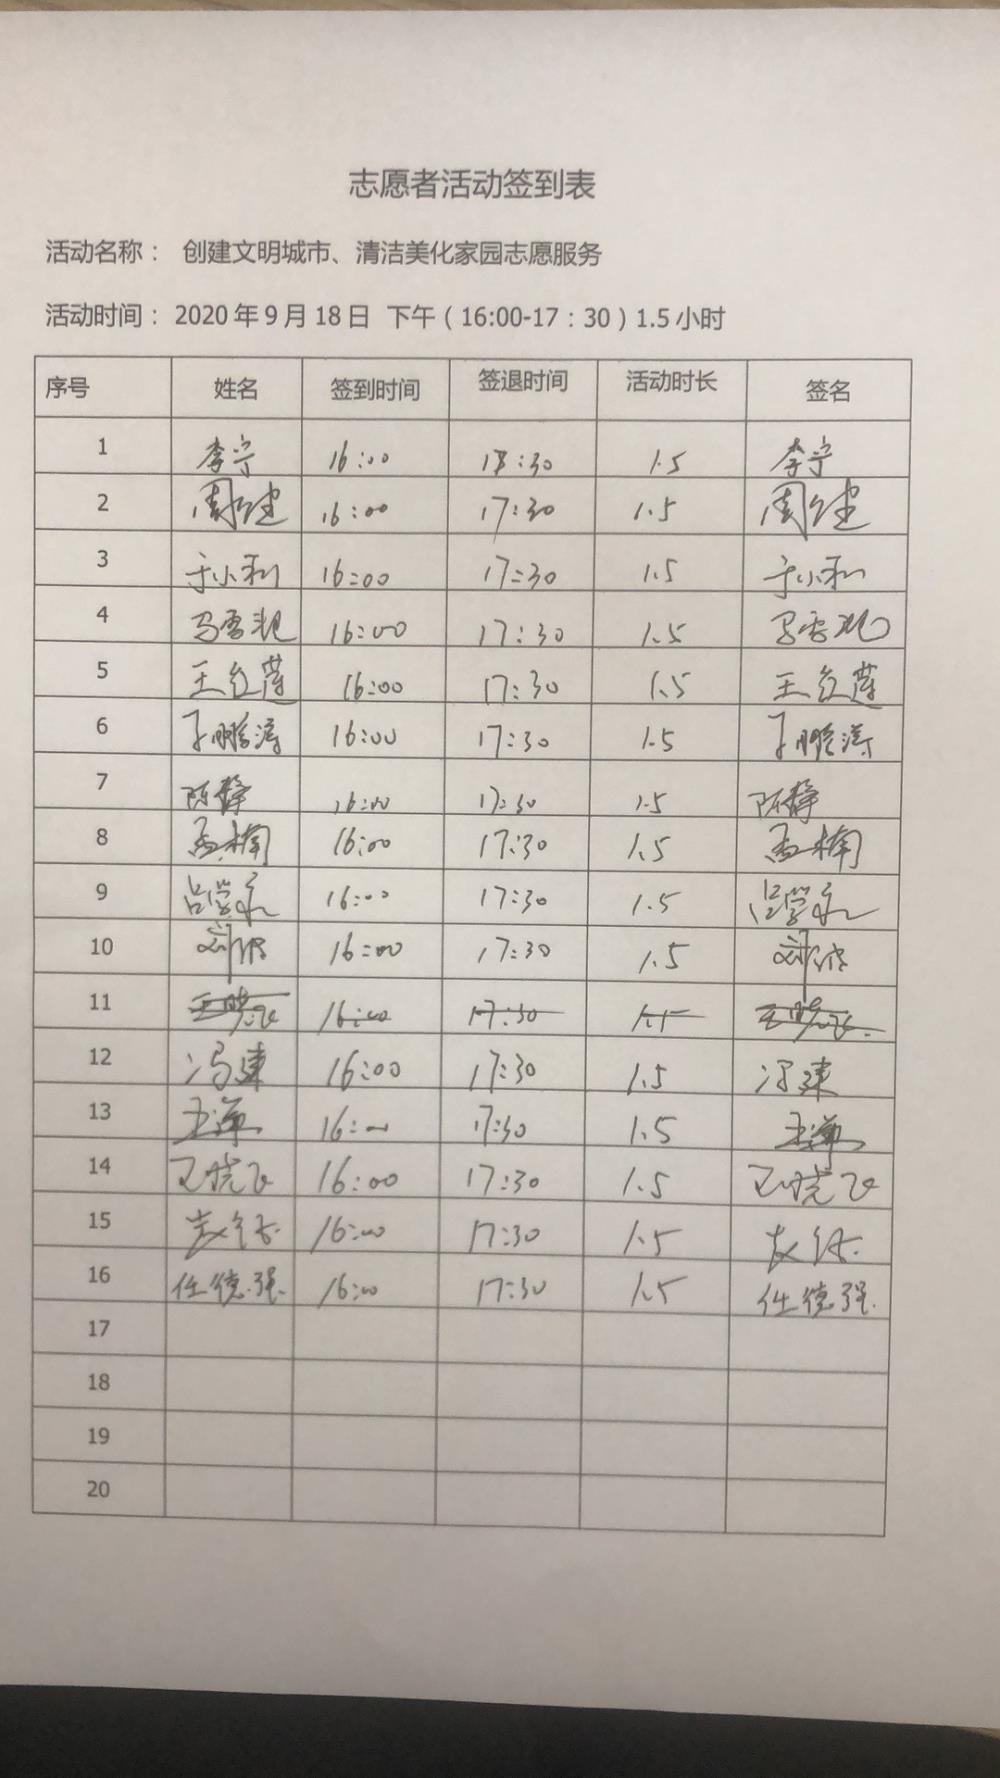 志愿者活动签到表
活动名称： 创建文明城市、清洁美化家园志愿服务
活动时间：2020年9月18日 下午（16:00-17：30）1.5小时
序号 姓名 签到时间 签退时间 活动时长 签名
1 李宁 16:00 18:30 1.5 李宁
2 周健 16:00 17:30 1.5 周健
3 于小利 16:00 17:30 1.5 于小利
4 马雪 16:00 17:30 1.5 马雪
5 王红莲 16:00 17:30 1.5 王红莲
6 于鹏涛 16:00 17:30 1.5 于鹏涛
7 陈静 16:00 17:30 1.5 陈静
8 孟楠 16:00 17:30 1.5 孟楠
9 吕学永 16:00 17:30 1.5 吕学永
10 刘波 16:00 17:30 1.5 刘波
11 王晓飞 16:00 17:30 1.5 王晓飞
12 冯建 16:00 17:30 1.5 冯建
13 王 16:00 17:30 1.5 王
14 王晓飞 16:00 17:30 1.5 王晓飞
15 16:00 17:30 1.5
16 任德强 16:00 17:30 1.5 任德强
17
18
19
20